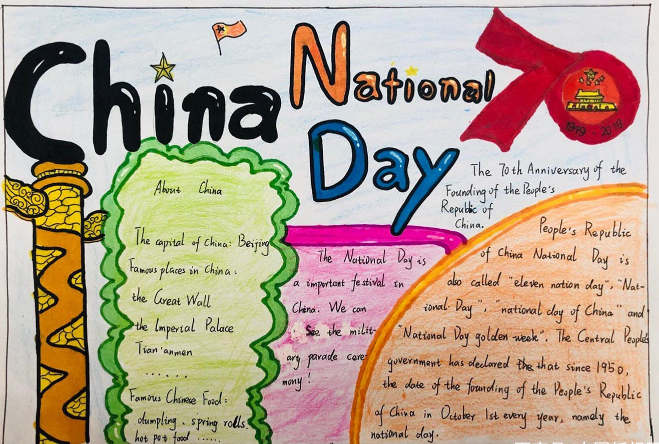 China
National
Day
70
1949-2019
The 70th Anniversary of the
Founding of the People's
Republic of
China.
About China
The capital of China: Beijing
Famous places in China:
the Great Wall
the Imperial Palace
Tian'anmen
......
Famous Chinese Food:
dumpling, spring rolls,
hot pot food ......
The National Day is
a important festival in
China. We can
See the milit-
ary parade cere-
mony!
People's Republic
of China National Day is
also called "eleven nation day", "Nat-
ional Day", "national day of China" and
"National Day golden week". The Central People's
government has declared the that since 1950,
the date of the founding of the People's Republic
of China in October 1st every year, namely the
national day.